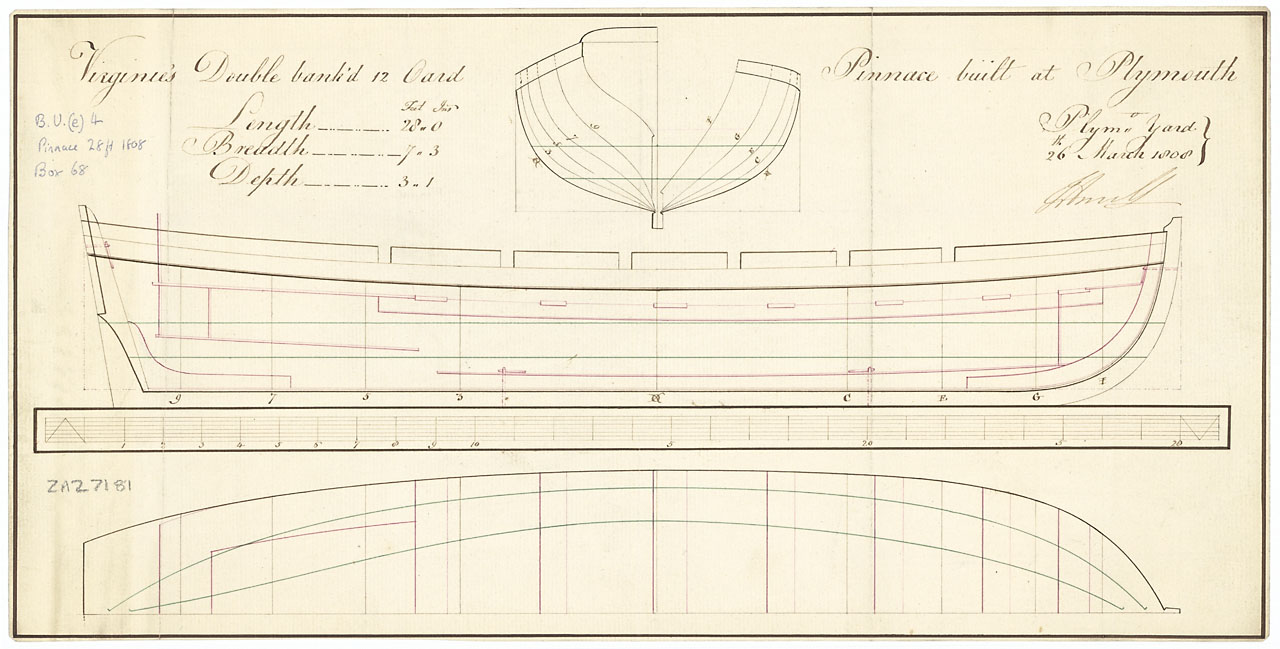 Virginie's Double bank'd 12 Oard Pinnace built at Plymouth
Feet Ins
Length 28 " 0
Breadth 7 " 3
Depth 3 " 1
B.U.(e) 4
Pinnace 28ft 1808
Box 68
Plymo Yard
26th March 1808
6
F
G
E
C
9 7 5 3 C E G I
1 2 3 4 5 6 7 8 9 10 5 20 5
ZAZ7181